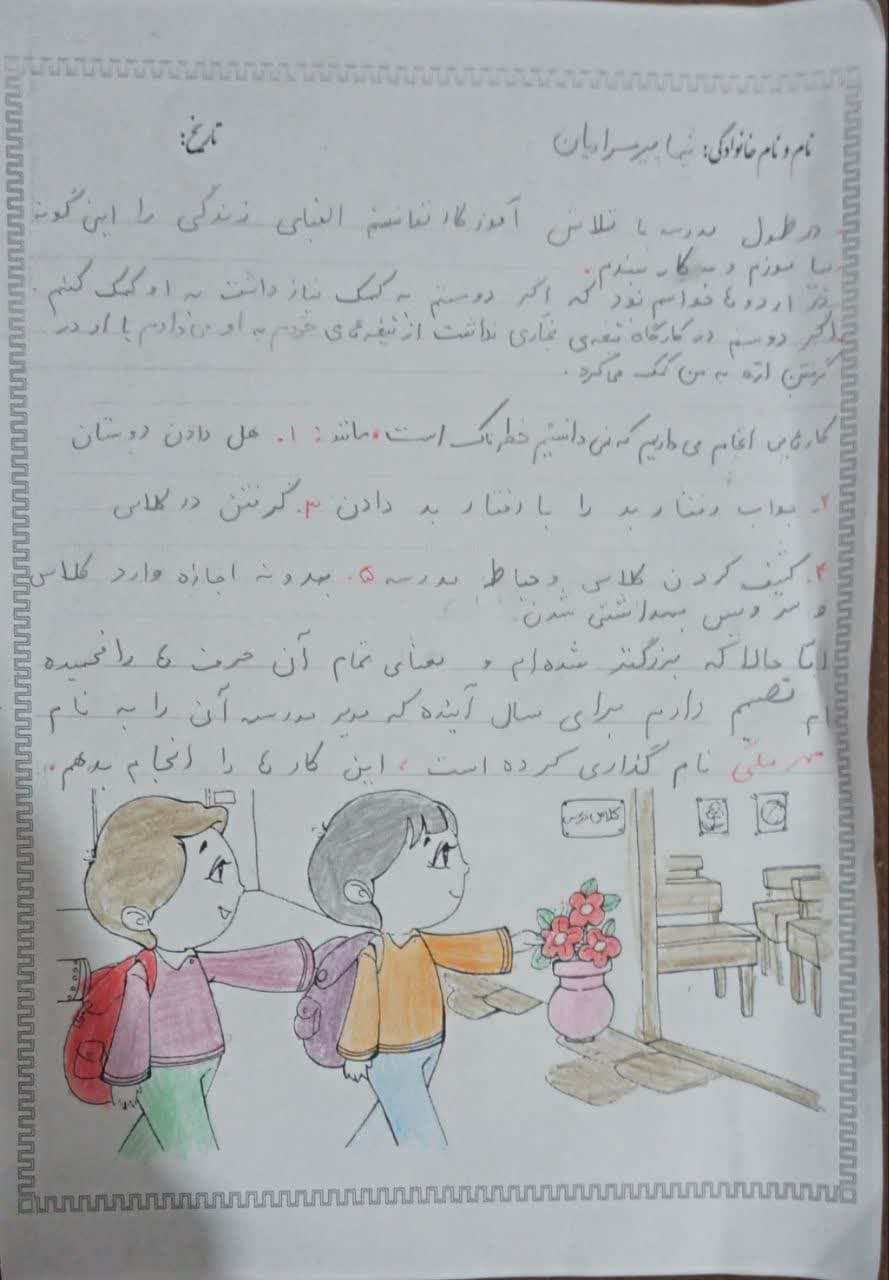 نام و نام خانوادگی: نیما میرمرادیان
تاریخ:
در طول مدرسه با تلاش آموزگار توانستم الفبای زندگی را این گونه
بیاموزم و به کار ببندم.
در اردوها حواسم بود که اگر دوستم به کمک نیاز داشت به او کمک کنم.
اگر دوستم در کارگاه تیغه‌ی نجاری نداشت از تیغه‌های خودم به او می‌دادم یا او در
گرفتن اره به من کمک می‌کرد.
کارهایی انجام می‌دادیم که نمی‌دانستیم خطرناک است، مانند: ۱. هل دادن دوستان
۲. جواب رفتار بد را با رفتار بد دادن ۳. گرفتن در کلاس
۴. کثیف کردن کلاس و حیاط مدرسه ۵. بدونه اجازه وارد کلاس
و سرویس بهداشتی شدن.
امّا حالا که بزرگتر شده‌ام و معنای تمام آن حرف ها را فهمیده
ام تصمیم دارم برای سال آینده که مدیر مدرسه آن را به نام
نام گذاری کرده است، این کار ها را انجام بدهم.
کلاس درس